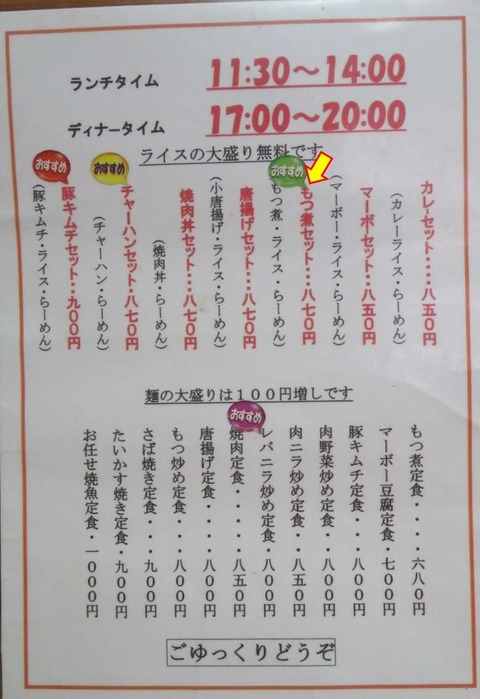 ランチタイム 11:30～14:00
ディナータイム 17:00～20:00
ライスの大盛り無料です
カレーセット・・・・八五〇円
(カレーライス・らーめん)
マーボーセット・・・八五〇円
(マーボー・ライス・らーめん)
おすすめ
もつ煮セット・・・八七〇円
(もつ煮・ライス・らーめん)
唐揚げセット・・・八七〇円
(小唐揚げ・ライス・らーめん)
焼肉丼セット・・・八七〇円
(焼肉丼・らーめん)
おすすめ
チャーハンセット・・・八七〇円
(チャーハン・らーめん)
おすすめ
豚キムチセット・・・九〇〇円
(豚キムチ・ライス・らーめん)
麺の大盛りは１００円増しです
もつ煮定食・・・・六八〇円
マーボー豆腐定食・・七〇〇円
豚キムチ定食・・・八〇〇円
肉野菜炒め定食・・・八〇〇円
肉ニラ炒め定食・・・八五〇円
レバニラ炒め定食・・八〇〇円
おすすめ
焼肉定食・・・・・八五〇円
唐揚げ定食・・・・八〇〇円
もつ炒め定食・・・八〇〇円
さば焼き定食・・・九〇〇円
たいかす焼き定食・・九〇〇円
お任せ焼魚定食・一〇〇〇円
ごゆっくりどうぞ